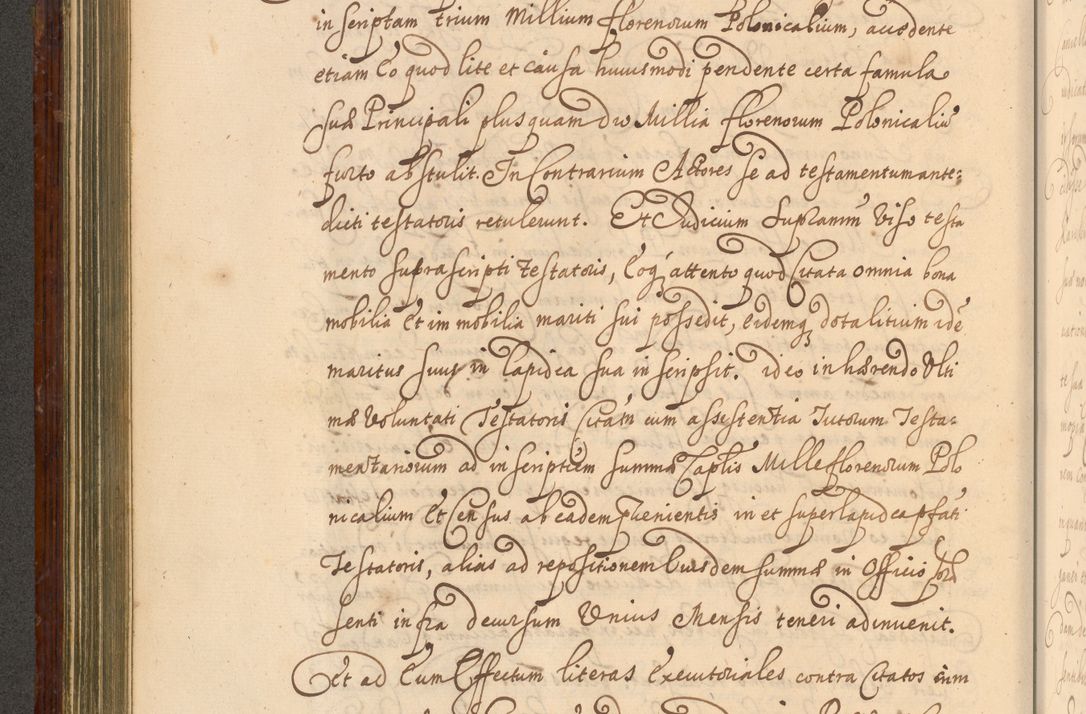 in scriptam trium Millium florenorum Polonicalium, accedente
etiam eo quod lite et causa huiusmodi pendente certa famula
suæ Principali plusquam duo Millia florenorum Polonicaliu
furto abstulit. In Contrarium Actores se ad testamentum ante-
dicti testatoris retulerunt. Et Judicium Supcanm Viso testa
mento suprascripti testatoris, Eoq attento quod Citata omnia bona
mobilia et immobilia mariti sui possedit, eidemq dotalitium idē
maritus suus in lapidea sua inscripsit. ideo inhærendo Ulti
mæ Voluntati Testatoris Citatā cum assistentia Tutorum Testa-
mentariorum ad inscriptem summæ Caplis Mille florenorum Polo
nicalium et Census ab eadem pvenientis in et super lapidea pfati
Testatoris, alias ad repositionem Eiusdem summæ in Officio præ
senti infra decursum Unius Mensis teneri adinvenit.
Et ad Eum Effectum literas Executoriales contra Citatos cum